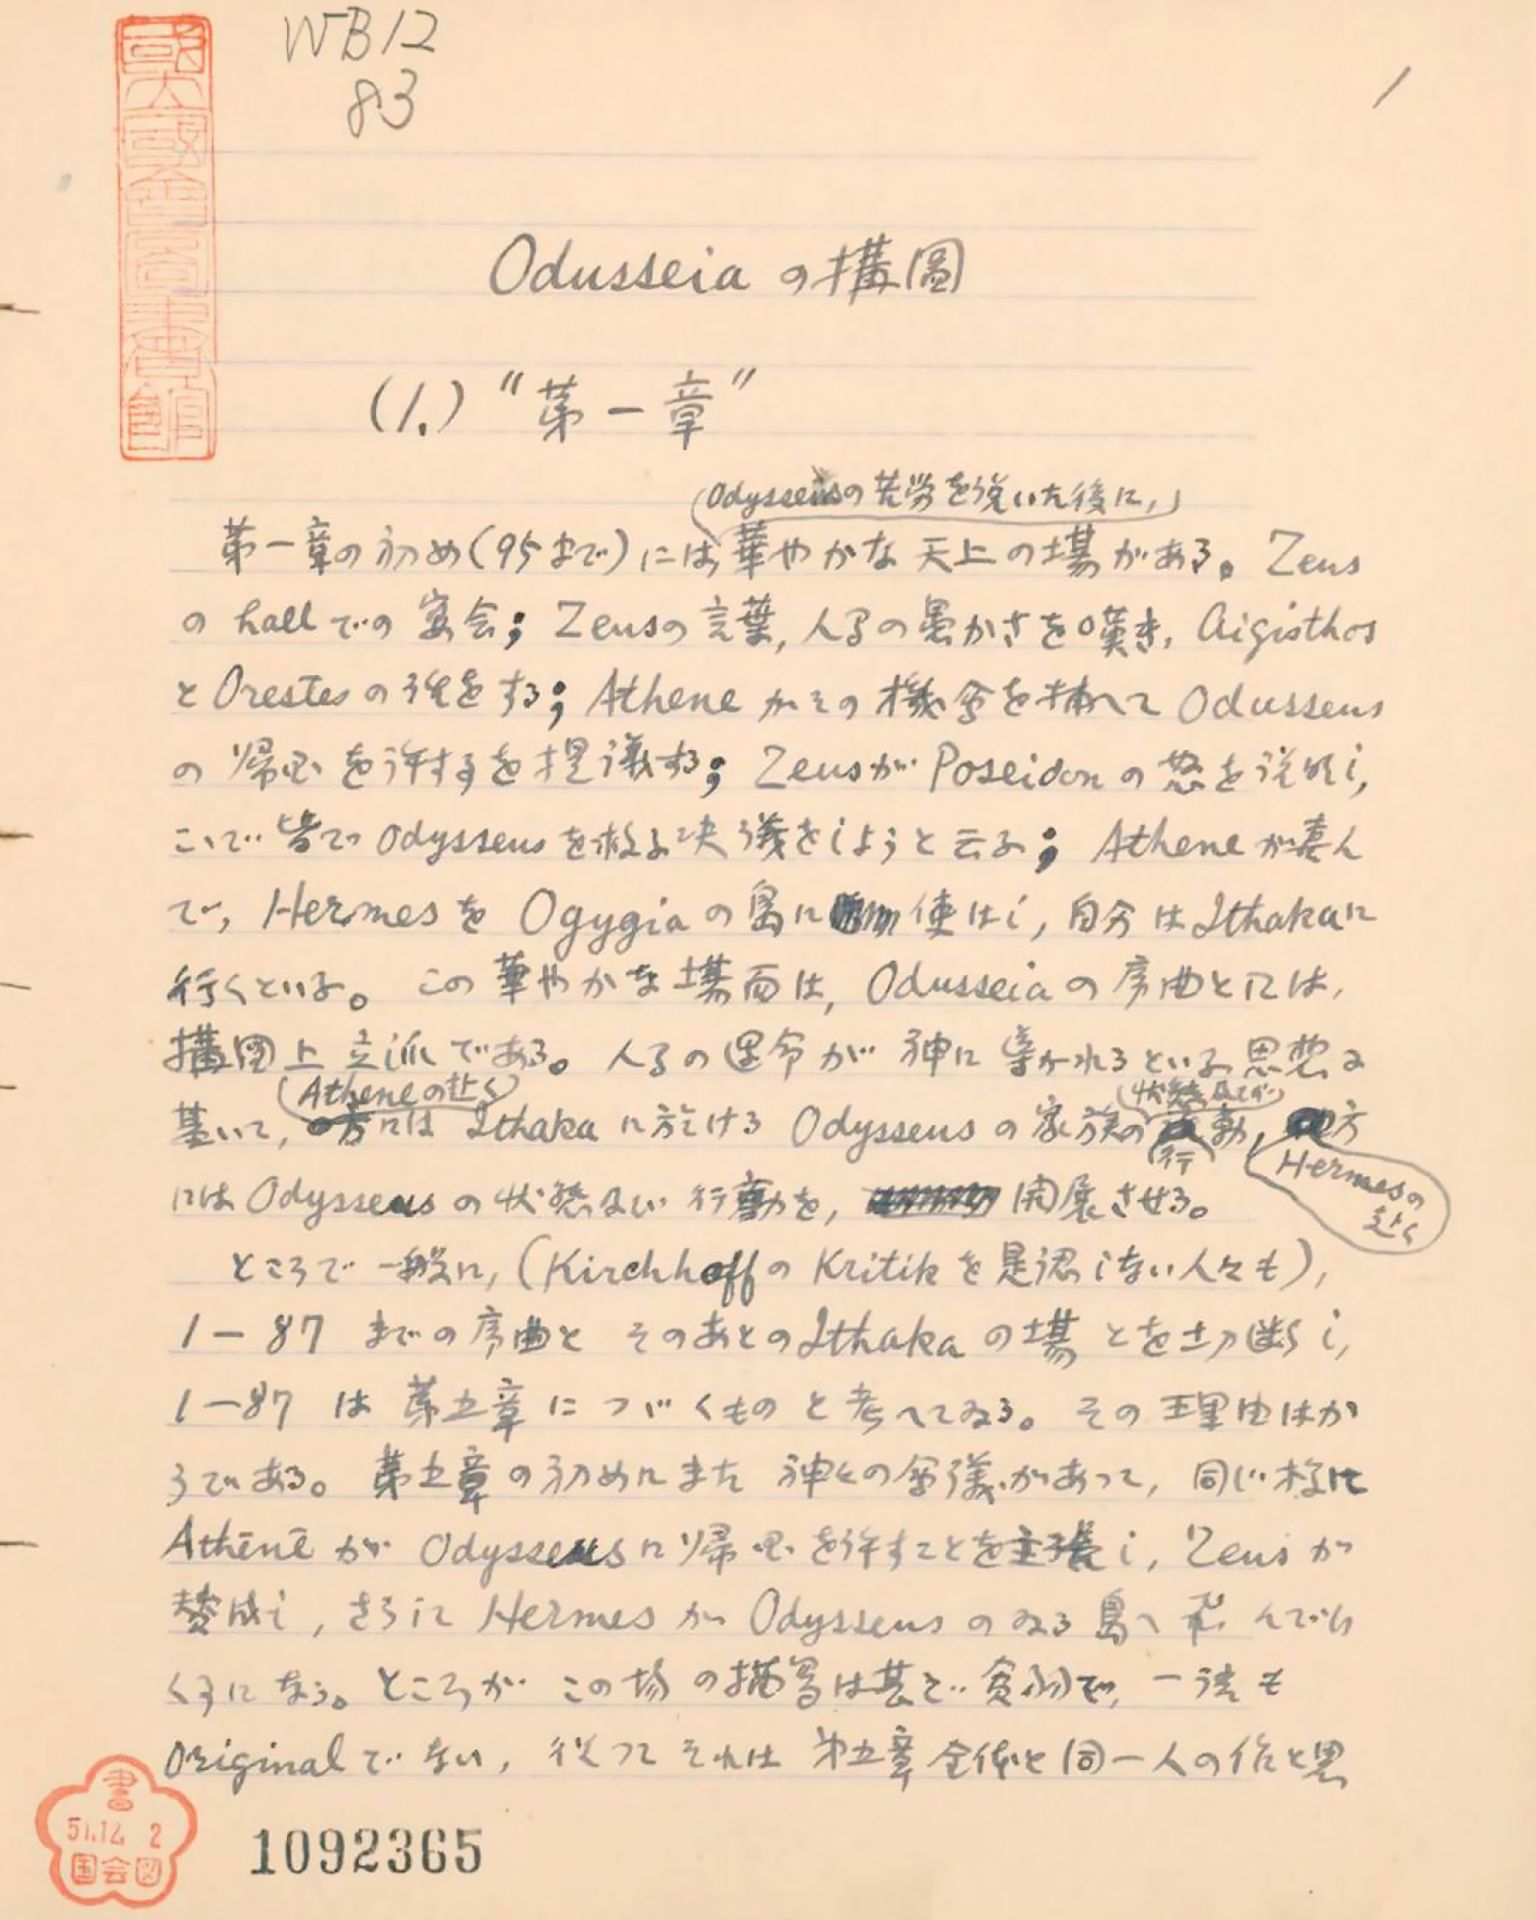 WB12
83
1
國立國會圖書館
Odusseiaの構圖
(1.) "第一章"
Odysseusの苦労を説いた後に,
第一章の初め(95まで)には華やかな天上の場がある。Zeus
のhallでの宴会; Zeusの言葉, 人間の愚かさを嘆き, Aigisthos
とOrestesの話をする; Atheneがその機会を捕へてOdusseus
の帰国を許すを提議する; ZeusがPoseidonの怒を説明し,
こゝで皆でOdysseusを救ふ決議をしようと云ふ; Atheneが喜ん
で, HermesをOgygiaの島に使はし, 自分はIthakaに
行くといふ。この華やかな場面は, Odusseiaの序曲としては,
構圖上立派である。人間の運命が神に導かれるといふ思想に
Atheneの赴く 状態及び
基いて, 方にはIthakaに於けるOdysseusの家族の行動, 他方
Hermesの赴く
にはOdysseusの状態及び行動を, 開展させる。
ところで一般に, (KirchhoffのKritikを是認しない人々も),
1-87までの序曲とそのあとのIthakaの場とを切断し,
1-87は第五章につゞくものと考へてゐる。その理由はか
うである。第五章の初めにまた神々の会議があつて, 同じ様に
AthēnēがOdysseusに帰国を許すことを主張し, Zeusが
賛成し, さうしてHermesがOdysseusのゐる島へ飛んでい
くことになる。ところがこの場の描写は甚だ貧弱で, 一つも
Originalでない, 従つてそれは第五章全体と同一人の作と思
書
51.12. 2
国会図
1092365